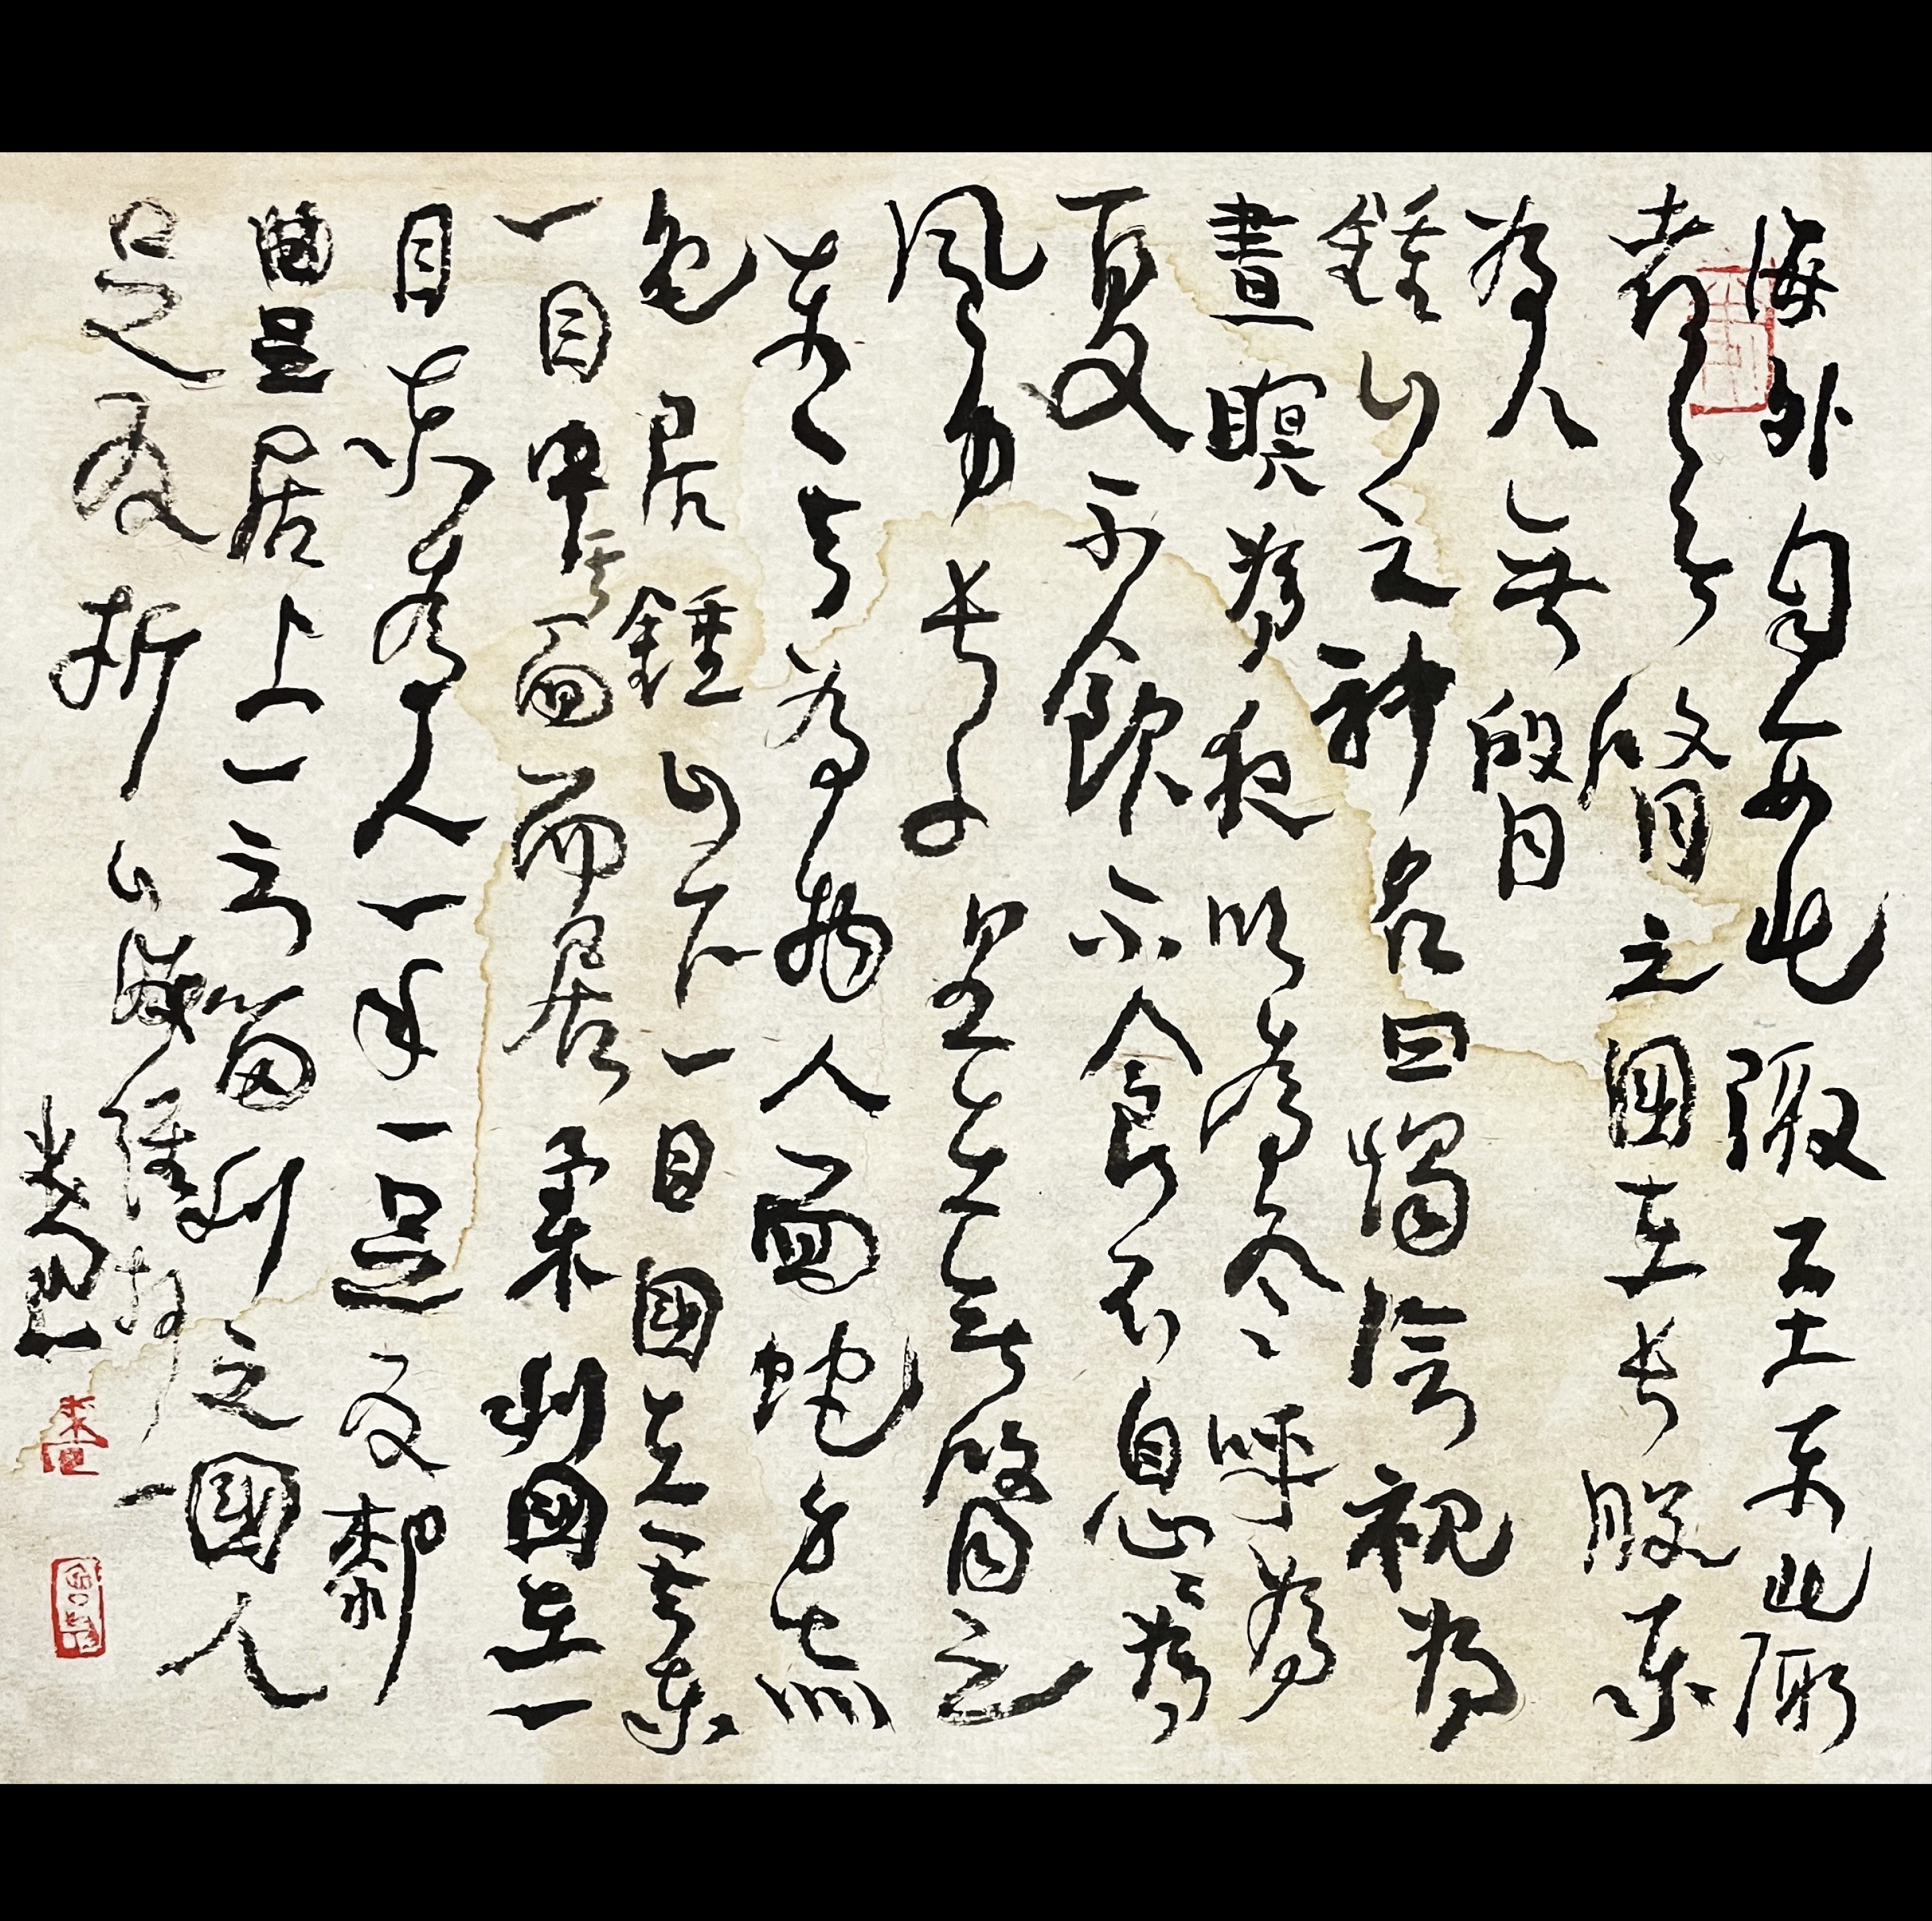 海外自西北陬至東北陬
者無𦝫之國在長股東
為人無𦝫
鍾山之神名曰燭陰視為
晝瞑為夜吹為冬呼為
夏不飲不食不息息為
風身長千里在無𦝫之
東其為物人面蛇身赤
色居鍾山下一目國在其東
一目中其面而居柔利國在一
目東為人一手一足反厀
曲足居上一云留利之國人
足反折 山海經